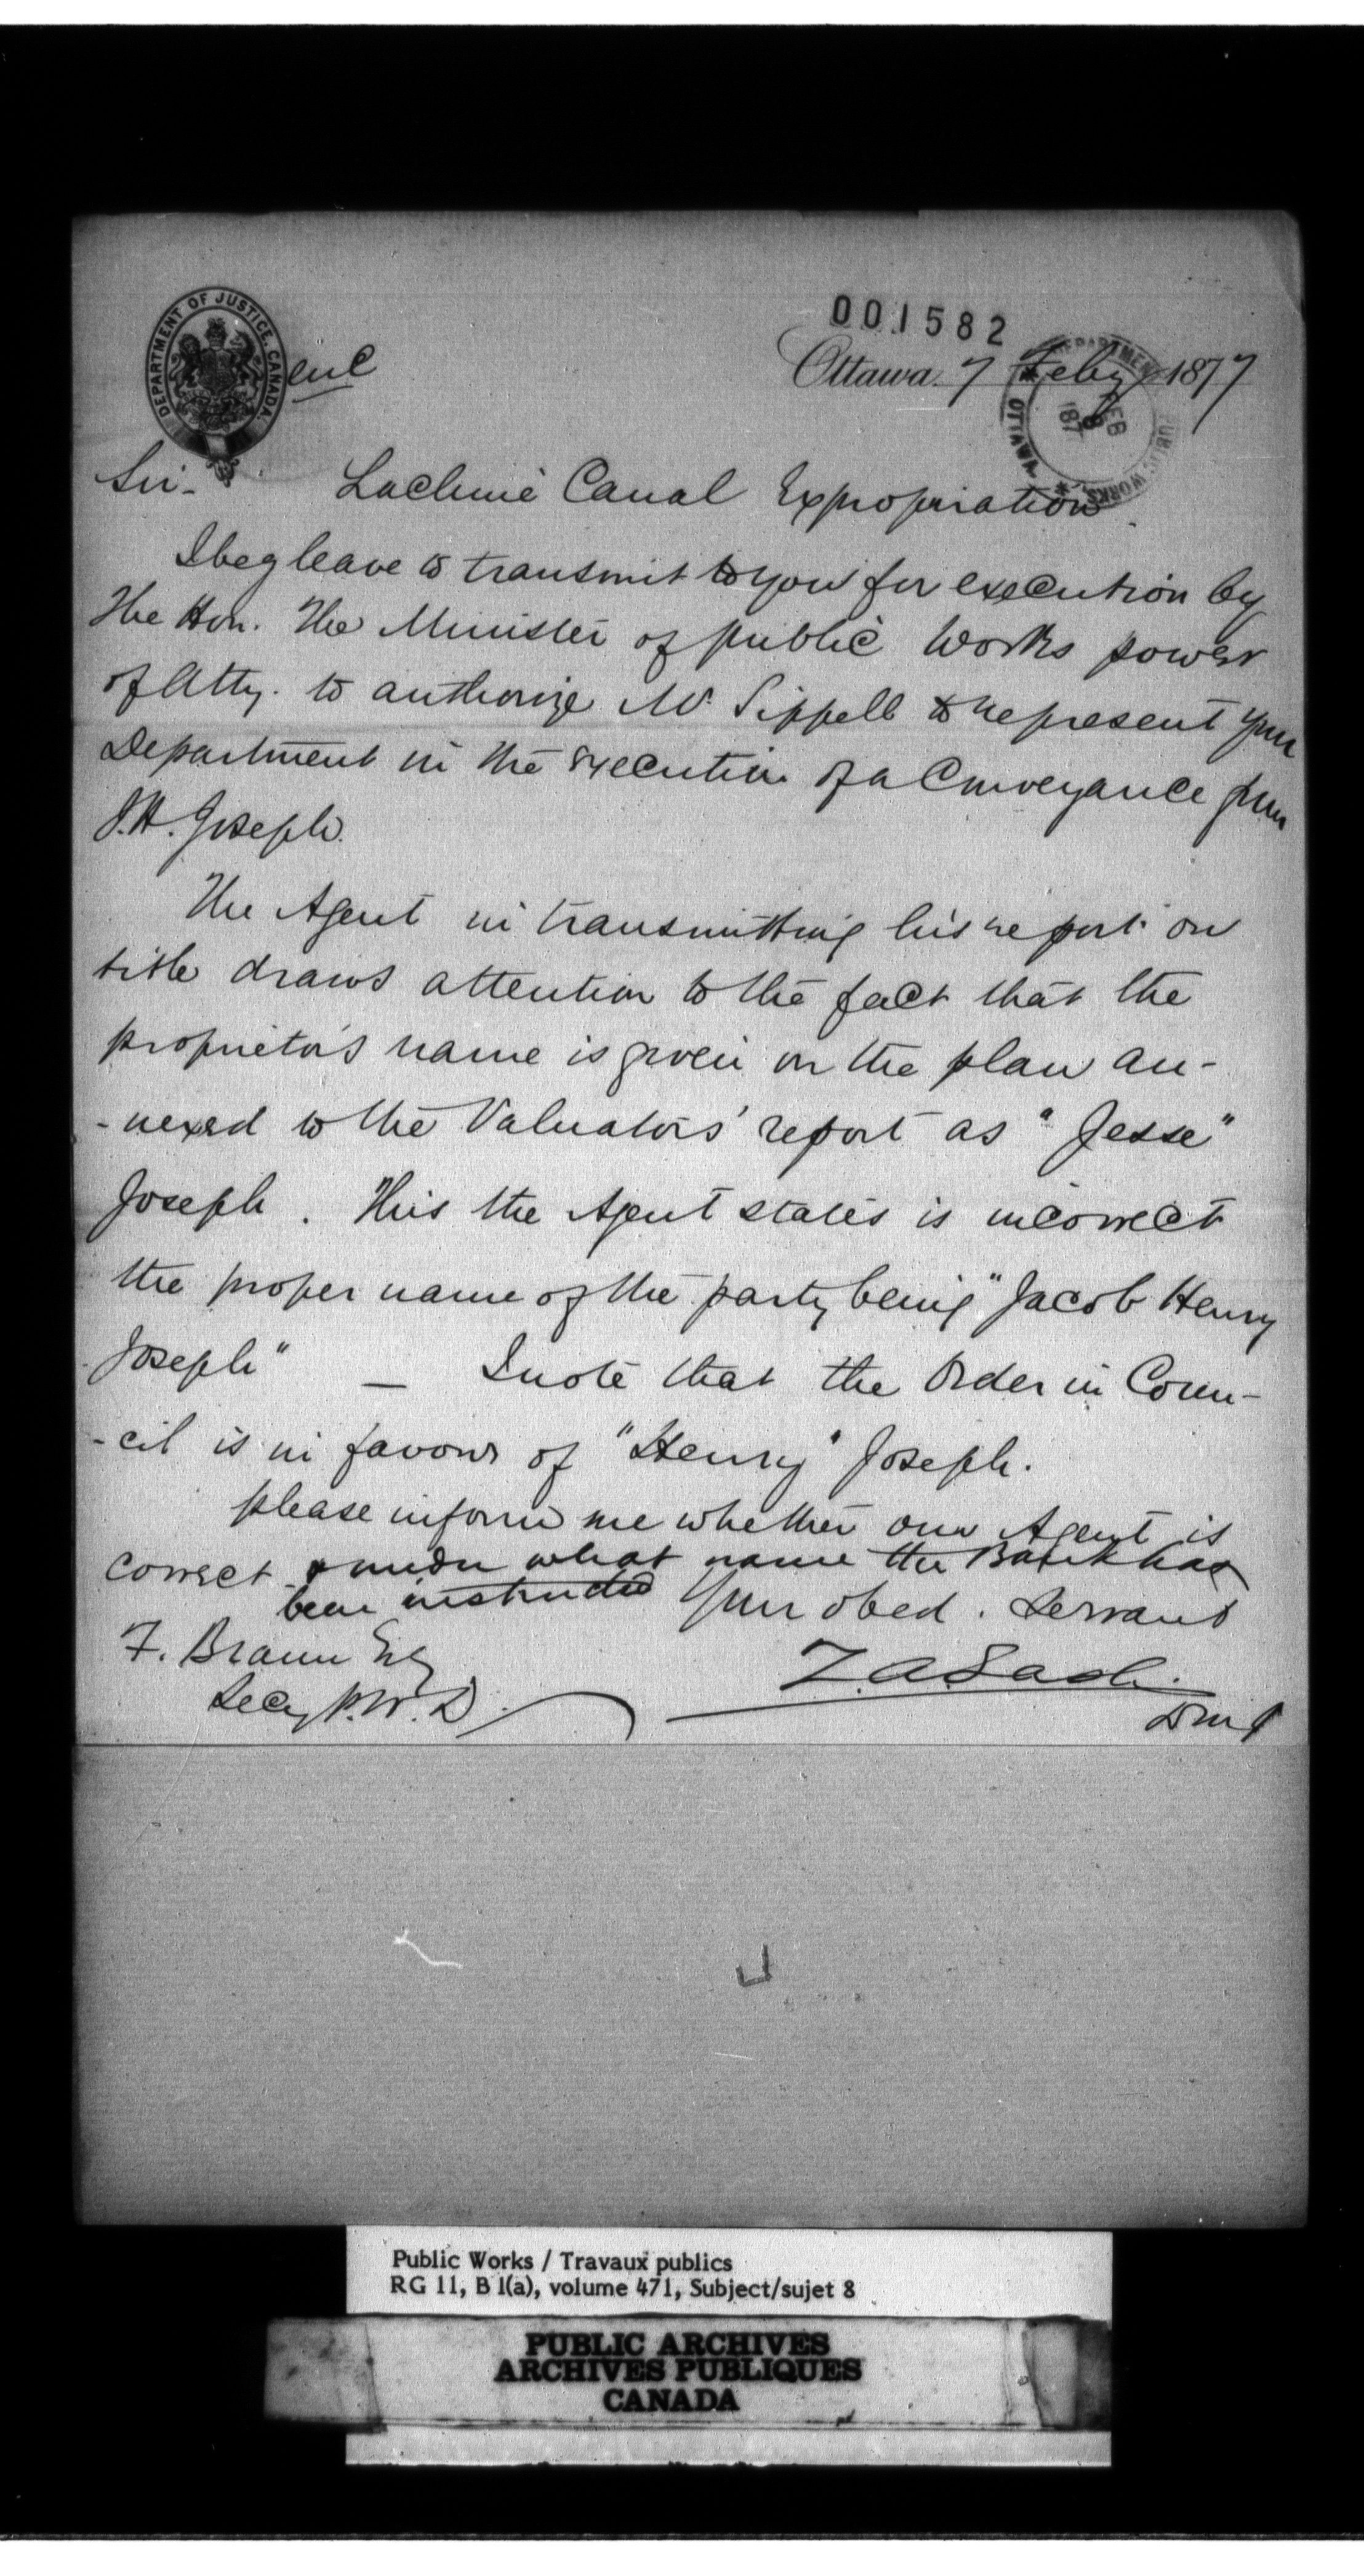 001582
DEPARTMENT OF JUSTICE, CANADA.
encl
Ottawa. 7 Feby 1877
DEPARTMENT PUBLIC WORKS OTTAWA FEB 8 187
Sir - Lachine Canal Expropriation
I beg leave to transmit to you for execution by
the Hon. the Minister of public Works power
of Atty. to authorize Mr. Sippell to represent your
Department in the execution of a Conveyance from
J.H. Joseph.
The Agent in transmitting his report on
title draws attention to the fact that the
proprietor's name is given on the plan an-
-nexed to the Valuators' report as "Jesse"
Joseph. This the Agent states is incorrect
the proper name of the party being "Jacob Henry
Joseph" _ I note that the Order in Coun-
-cil is in favour of "Henry" Joseph.
please inform me whether our Agent is
correct & under what name the Bank has
been instructed Your obed. Servant
F. Braun Esq
Secy P.W.D. Z.A. Lash.
DmJ
Public Works / Travaux publics
RG 11, B 1(a), volume 471, Subject/sujet 8
PUBLIC ARCHIVES
ARCHIVES PUBLIQUES
CANADA